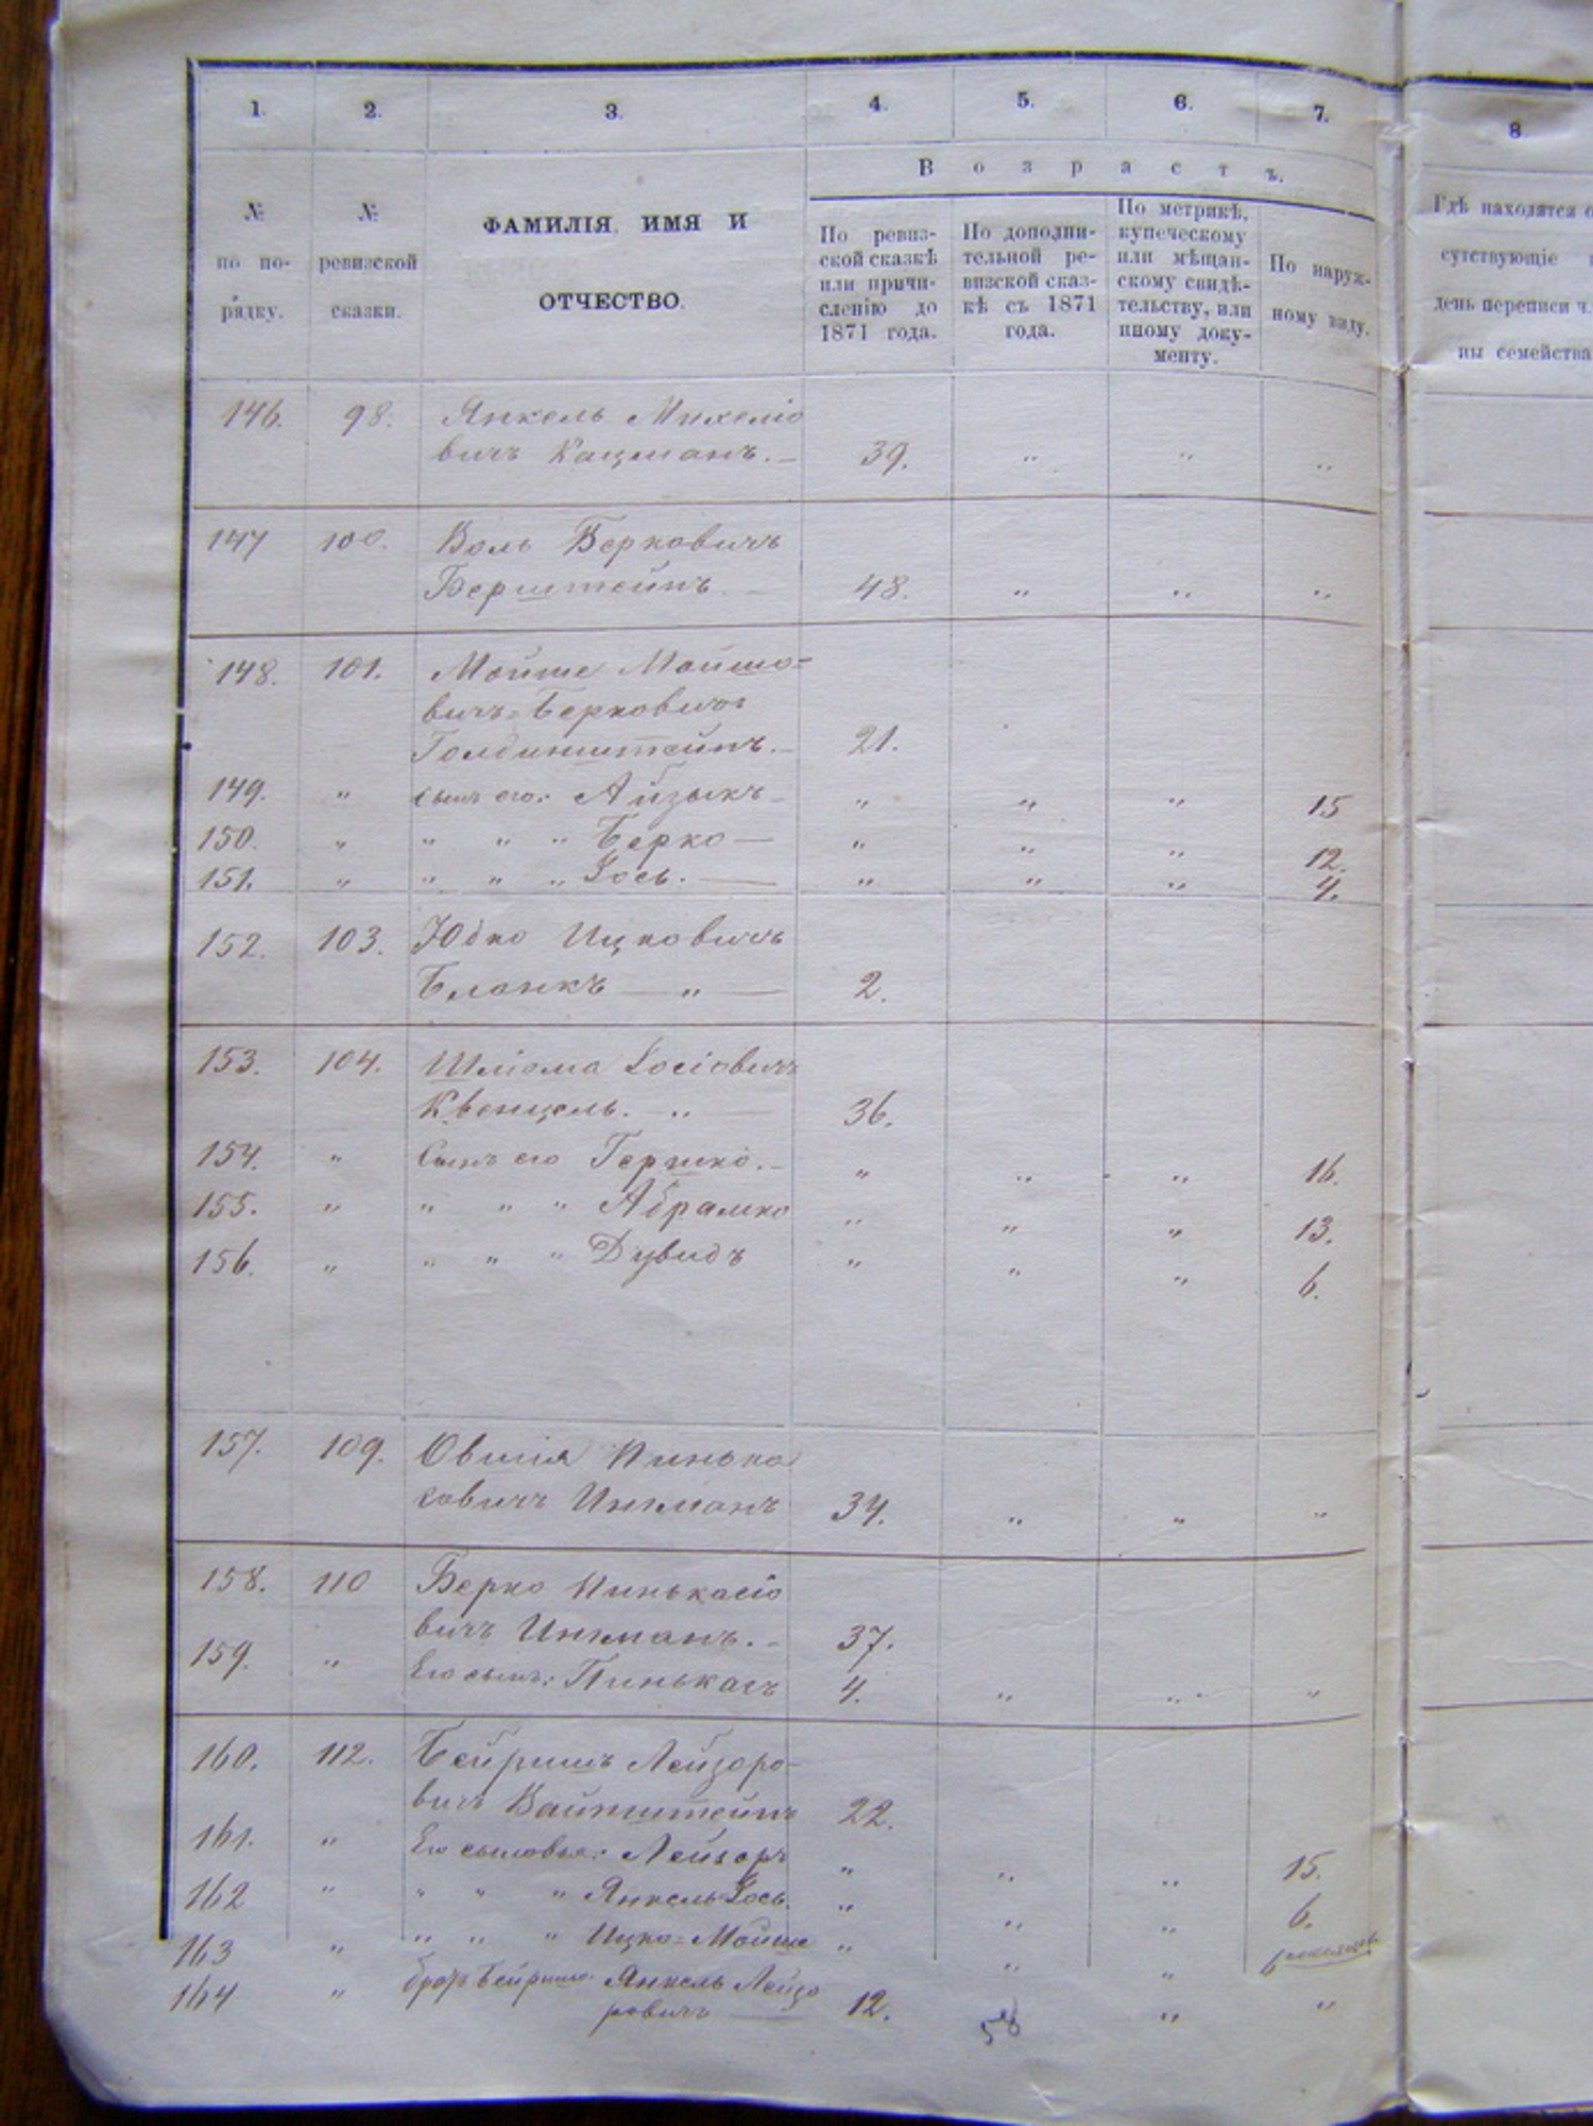 1. 2. 3. 4. 5. 6. 7. 8
Возрастъ.
№ по порядку.
№ ревизской сказки.
ФАМИЛІЯ, ИМЯ И
ОТЧЕСТВО.
По ревиз-
ской сказкѣ
или причи-
сленію до
1871 года.
По дополни-
тельной ре-
визской сказ-
кѣ съ 1871
года.
По метрикѣ,
купеческому
или мѣщан-
скому свидѣ-
тельству, или
иному доку-
менту.
По наруж-
ному виду.
Гдѣ находятся о
сутствующіе
день переписи ч
ны семейства
146. 98. Янкель Михеліо
вичъ Кацманъ. — 39. " " "
147 100. Воль Берковичъ
Берштейнъ — 48. " " "
148. 101. Мойше Мойшо=
вичъ=Берковичъ
Голдинштейнъ. — 21.
149. " сынъ его: Айзыкъ — " " " 15
150. " " " " Берко — " " " 12.
151. " " " " Іось. — " " " 4.
152. 103. Юдко Ицковичъ
Бланкъ — " — 2.
153. 104. Шліома Іосіовичъ
Квенцель. — " — 36.
154. " Сынъ его Гершко. — " " " 16.
155. " " " " Абрамко " " " 13.
156. " " " " Дувидъ " " " 6.
157. 109. Овшія Пинька
совичъ Инкманъ 34. " " "
158. 110 Берко Пинькасіо
вичъ Инкманъ. — 37.
159. " Его сынъ: Пинькасъ 4. " " "
160. 112. Бейришъ Лейзоро-
вичъ Вайнштейнъ 22.
161. " Его сыновья: Лейзоръ " " " 15.
162 " " " " Янкель Іось. " " " 6.
163 " " " " Ицко=Мойше " " " 6
164 " братъ Бейриша Янкель Лейзо
ровичъ — 12. " "
58